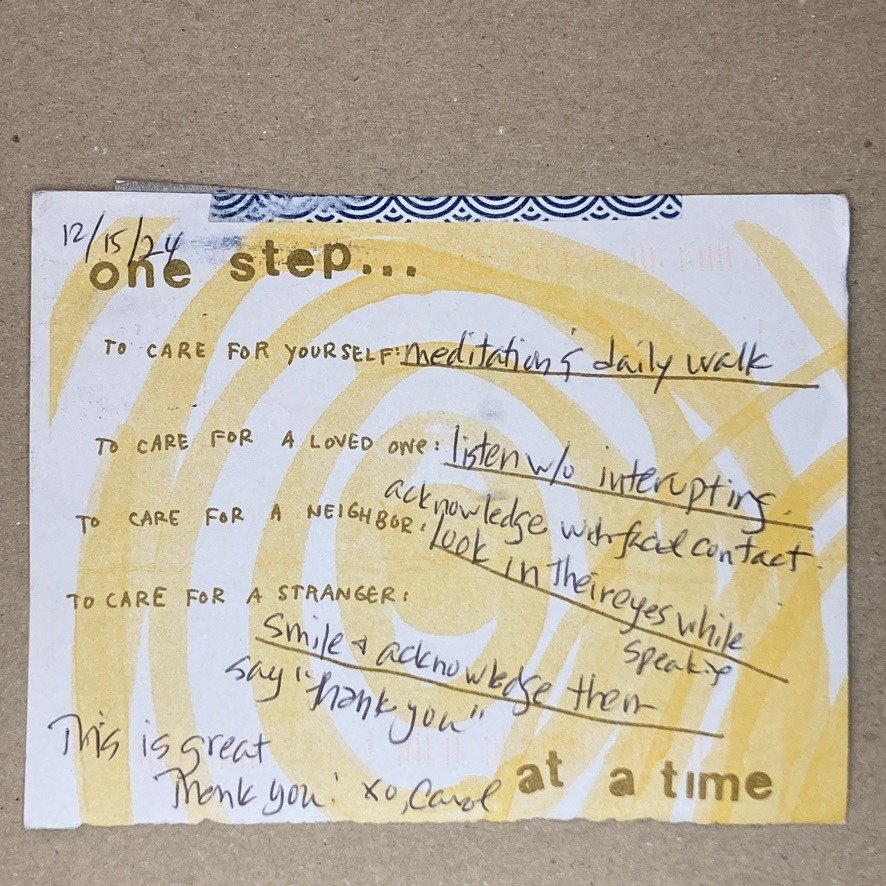 12/15/24
one step...
TO CARE FOR YOURSELF: meditation & daily walk
TO CARE FOR A LOVED ONE: listen w/o interupting.
TO CARE FOR A NEIGHBOR: acknowledge with facial contact.
Look in their eyes while
speaking
TO CARE FOR A STRANGER:
smile & acknowledge them
say "thank you"
This is great
Thank you! xo, Carol
at a time